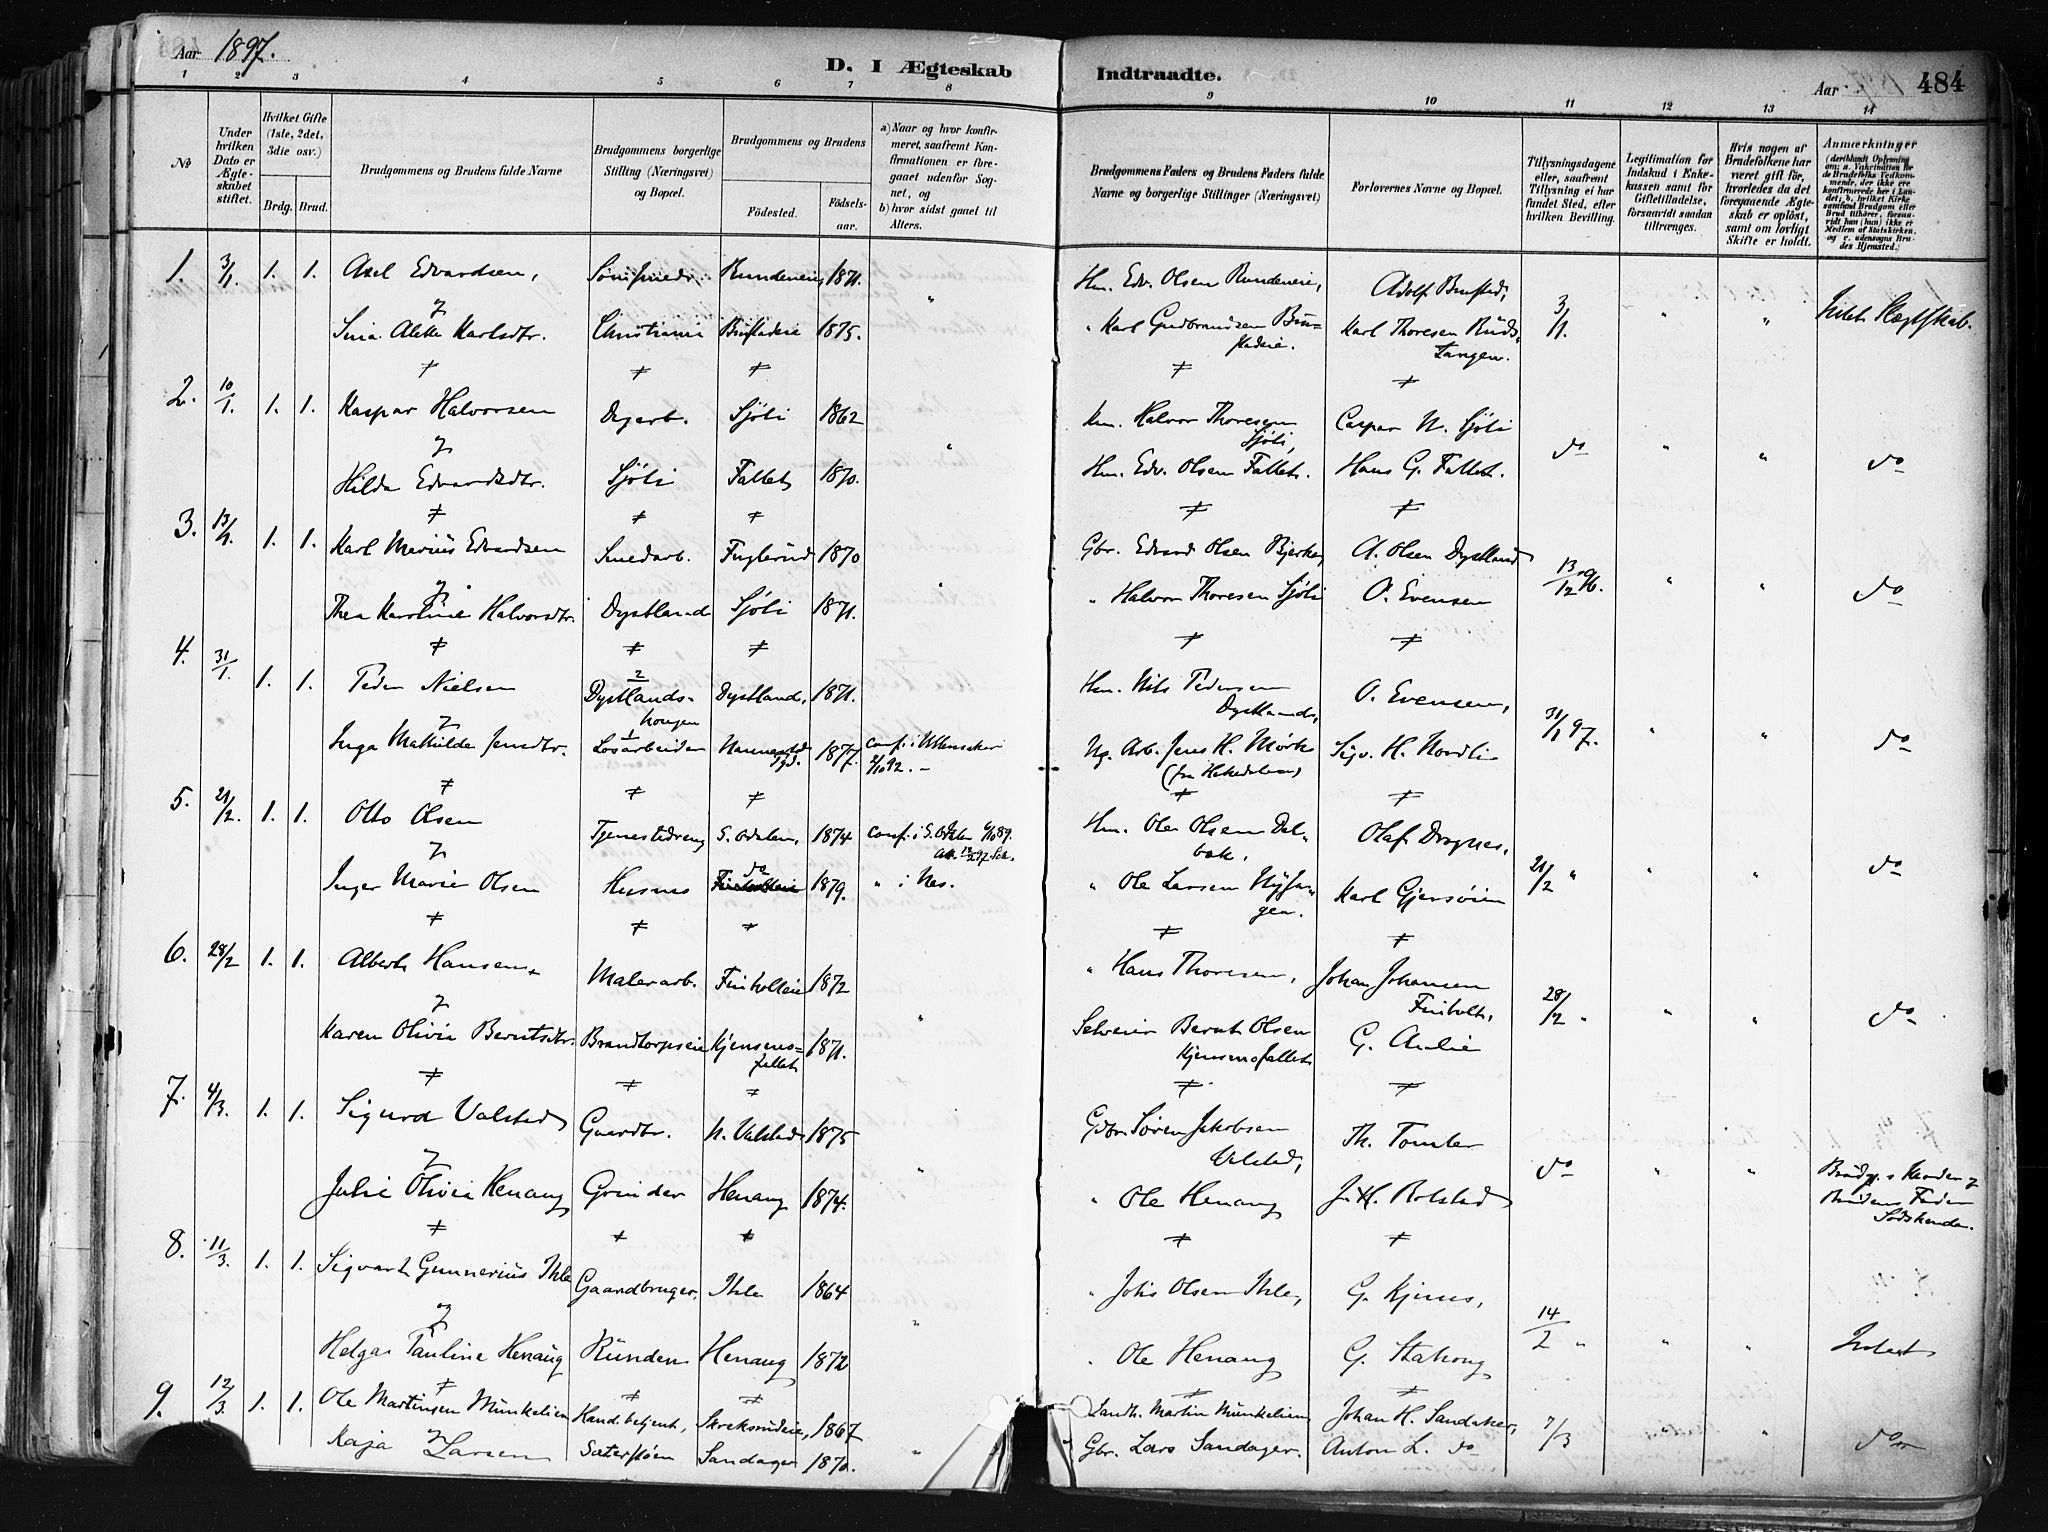 Aar 1897.
D. I Ægteskab Indtraadte.
Aar 484
1 2 3 4 5 6 7 8 9 10 11 12 13 14
№
Under hvilken Dato er Ægteskabet stiftet.
Hvilket Gifte (1ste, 2det, 3die osv.)
Brdg. Brud.
Brudgommens og Brudens fulde Navne
Brudgommens borgerlige Stilling (Næringsvei) og Bopæl.
Brudgommens og Brudens
Fødested. Fødselsaar.
a) Naar og hvor konfirmeret, saafremt Konfirmationen er foregaaet udenfor Sognet, og
b) hvor sidst gaaet til Alters.
Brudgommens Faders og Brudens Faders fulde Navne og borgerlige Stillinger (Næringsvei)
Forlovernes Navne og Bopæl.
Tillysningsdagene eller, saafremt Tillysning ei har fundet Sted, efter hvilken Bevilling.
Legitimation for Indskud i Enkekassen samt for Giftetilladelse, forsaavidt saadan tiltrænges.
Hvis nogen af Brudefolkene har været gift før, hvorledes da det foregaaende Ægteskab er opløst, samt om lovligt Skifte er holdt.
Anmærkninger
1. 3/1 1. 1. Axel Edvardsen, Rundeneie 1871. " Hm. Edv. Olsen Rundeneie, Adolf Brustad, 3/1. " " Intet Slægtskab.
Karlsdtr. Christiania Brustadeie 1875. " Karl Gudbrandsen Brustadeie. Karl Thoresen Rudstangen.
2. 10/1. 1. 1. Kaspar Halvorsen Dagarb. Sjøli 1862 " Hm. Halvor Thoresen Sjøli, Caspar N. Sjøli do " " do
Hilda Edvardsdtr. Sjøli Fallet 1870. Hm. Edv. Olsen Fallet. Hans G. Fallet.
3. 13/1. 1. 1. Karl Marius Edvardsen Smedarb. Fuglerud 1870 " Gbr. Edvard Olsen Bjerke, A. Olsen Dystland 13/12 96. " " do
Thea Karoline Halvorsdtr. Dystland Sjøli 1871. " Halvor Thoresen Sjøli O. Evensen
4. 31/1. 1. 1. Peder Nielsen Dystlandshaugen Dystland, 1871. Hm. Nils Pedersen Dystlands, O. Evensen, 31/1 97. " " do
Inga Mathilde Jensdtr. Løsarbeider 1877. conf. i Ullensaker 92. Ug. Arb. Jens H. Mørk Sigv. H. Nordli
5. 21/2. 1. 1. Otto Olsen Tjenestedreng S. Odalen, 1874 conf. i S. Odalen 89. Hm. Ole Olsen Dalbak, Olaf Dragnes, 21/2 " " " do
Inger Marie Olsen Husnes do 1879. " i Nes. " Ole Larsen Nyhagen. Karl Gjersøien
6. 28/2 1. 1. Albert Hansen Malerarb. Finholteie 1872 " " Hans Thoresen, Johan Johansen Finholt, 28/2 " " " do
Karen Olivia Berntsdtr. Brandtorpseie Kjensmofallet 1871. Selveier Bernt Olsen Kjensmofallet G. Aulie
7. 4/3. 1. 1. Sigurd Valstad Gaardbr. N. Valstad 1875 " Gbr. Søren Jakobsen Valstad, Th. Tomter do " " Brudg.s Moder og
Julie Olivia Henaug Grinder Henaug 1874. " Ole Henaug J. H. Rolstad Brudens Fader Sødskende.
8. 11/3. 1. 1. Sigvart Gunnerius Ihle Gaardbruger. Ihle 1864 " " Johs Olsen Ihle, G. Kjernes, 14/2 " " " Intet
Helga Pauline Henaug Runden Henaug 1872 " Ole Henaug G. Stahaug
9. 12/3. 1. 1. Ole Martinsen Munkelien Hand.betjent, Skreksrudeie, 1867 " Landh. Martin Munkelien Johan H. Sandaker, 7/3 " " do
Kaja Larsen Sæterstøen Sandager 1870. Gbr. Lars Sandager. Anton L. do